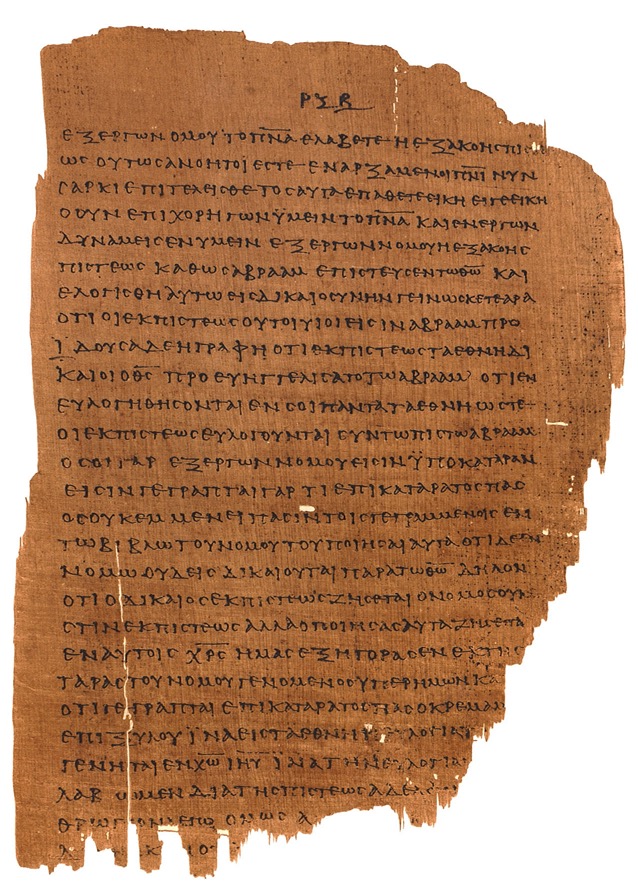 ΡΞΒ
ΕΞ ΕΡΓΩΝ ΝΟΜΟΥ ΤΟ Π̅Ν̅Α̅ ΕΛΑΒΕΤΕ Η ΕΞ ΑΚΟΗϹ
ΟΥΤΩϹ ΑΝΟΗΤΟΙ ΕϹΤΕ ΕΝΑΡΞΑΜΕΝΟΙ Π̅Ν̅Ι̅ ΝΥΝ
ϹΑΡΚΙ ΕΠΙΤΕΛΕΙϹΘΕ ΤΟϹΑΥΤΑ ΕΠΑΘΕΤΕ ΕΙΚΗ ΕΙ ΓΕ ΕΙΚΗ
Ο ΟΥΝ ΕΠΙΧΟΡΗΓΩΝ ΫΜΕΙΝ ΤΟ Π̅Ν̅Α̅ ΚΑΙ ΕΝΕΡΓΩΝ
ΔΥΝΑΜΕΙϹ ΕΝ ΥΜΕΙΝ ΕΞ ΕΡΓΩΝ ΝΟΜΟΥ Η ΕΞ ΑΚΟΗϹ
ΠΙϹΤΕΩϹ ΚΑΘΩϹ ΑΒΡΑΑΜ ΕΠΙϹΤΕΥϹΕΝ ΤΩ Θ̅Ω̅ ΚΑΙ
ΕΛΟΓΙϹΘΗ ΑΥΤΩ ΕΙϹ ΔΙΚΑΙΟϹΥΝΗΝ ΓΕΙΝΩϹΚΕΤΕ ΑΡΑ
ΟΤΙ ΟΙ ΕΚ ΠΙϹΤΕΩϹ ΟΥΤΟΙ ΥΙΟΙ ΕΙϹΙΝ ΑΒΡΑΑΜ ΠΡΟ
ΪΔΟΥϹΑ ΔΕ Η ΓΡΑΦΗ ΟΤΙ ΕΚ ΠΙϹΤΕΩϹ ΤΑ ΕΘΝΗ ΔΙ
ΚΑΙΟΙ Ο Θ̅Ϲ̅ ΠΡΟΕΥΗΓΓΕΛΙϹΑΤΟ ΤΩ ΑΒΡΑΑΜ ΟΤΙ ΕΝ
ΕΥΛΟΓΗΘΗϹΟΝΤΑΙ ΕΝ ϹΟΙ ΠΑΝΤΑ ΤΑ ΕΘΝΗ ΩϹΤΕ
ΟΙ ΕΚ ΠΙϹΤΕΩϹ ΕΥΛΟΓΟΥΝΤΑΙ ϹΥΝ ΤΩ ΠΙϹΤΩ ΑΒΡΑΑΜ
ΟϹΟΙ ΓΑΡ ΕΞ ΕΡΓΩΝ ΝΟΜΟΥ ΕΙϹΙΝ ΫΠΟ ΚΑΤΑΡΑΝ
ΕΙϹΙΝ ΓΕΓΡΑΠΤΑΙ ΓΑΡ ΤΙ ΕΠΙΚΑΤΑΡΑΤΟϹ ΠΑϹ
ΟϹ ΟΥΚ ΕΜΜΕΝΕΙ ΠΑϹΙΝ ΤΟΙϹ ΓΕΓΡΑΜΜΕΝΟΙϹ ΕΝ
ΤΩ ΒΙΒΛΩ ΤΟΥ ΝΟΜΟΥ ΤΟΥ ΠΟΙΗϹΑΙ ΑΥΤΑ ΟΤΙ ΔΕ ΕΝ
ΝΟΜΩ ΟΥΔΕΙϹ ΔΙΚΑΙΟΥΤΑΙ ΠΑΡΑ ΤΩ Θ̅Ω̅ ΔΗΛΟΝ
ΟΤΙ Ο ΔΙΚΑΙΟϹ ΕΚ ΠΙϹΤΕΩϹ ΖΗϹΕΤΑΙ Ο ΝΟΜΟϹ ΟΥΚ
ϹΤΙΝ ΕΚ ΠΙϹΤΕΩϹ ΑΛΛΑ Ο ΠΟΙΗϹΑϹ ΑΥΤΑ ΖΗϹΕΤΑ
ΕΝ ΑΥΤΟΙϹ Χ̅Ρ̅Ϲ̅ ΗΜΑϹ ΕΞΗΓΟΡΑϹΕΝ ΕΚ ΤΗϹ
ΤΑΡΑϹ ΤΟΥ ΝΟΜΟΥ ΓΕΝΟΜΕΝΟϹ ΥΠΕΡ ΗΜΩΝ ΚΑ
ΟΤΙ ΓΕΓΡΑΠΤΑΙ ΕΠΙΚΑΤΑΡΑΤΟϹ ΠΑϹ Ο ΚΡΕΜΑΜ
ΕΠΙ ΞΥΛΟΥ ΪΝΑ ΕΙϹ ΤΑ ΕΘΝΗ Η ΕΥΛΟΓΙΑ
ΓΕΝΗΤΑΙ ΕΝ Χ̅Ω̅ Ι̅Η̅Υ̅ ΪΝΑ ΤΗΝ ΕΥΛΟΓΙΑ
ΛΑΒΩΜΕΝ ΔΙΑ ΤΗϹ ΠΙϹΤΕΩϹ ΑΔΕΛΦΟΙ
ΘΡΩΠΟΝ ΛΕΓΩ ΟΜΩϹ Α